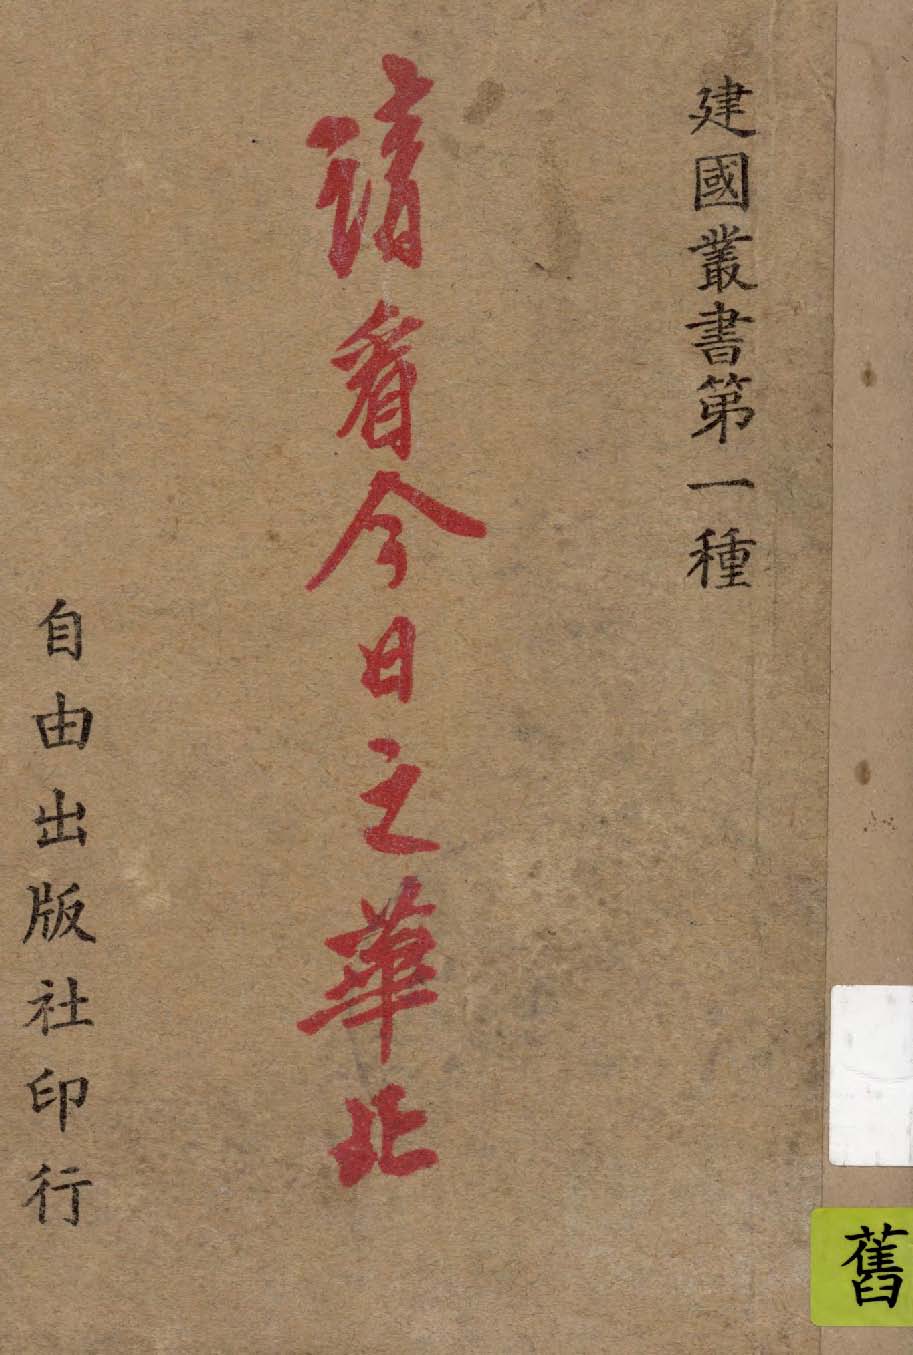 建國叢書第一種
請看今日之華北
自由出版社印行
舊